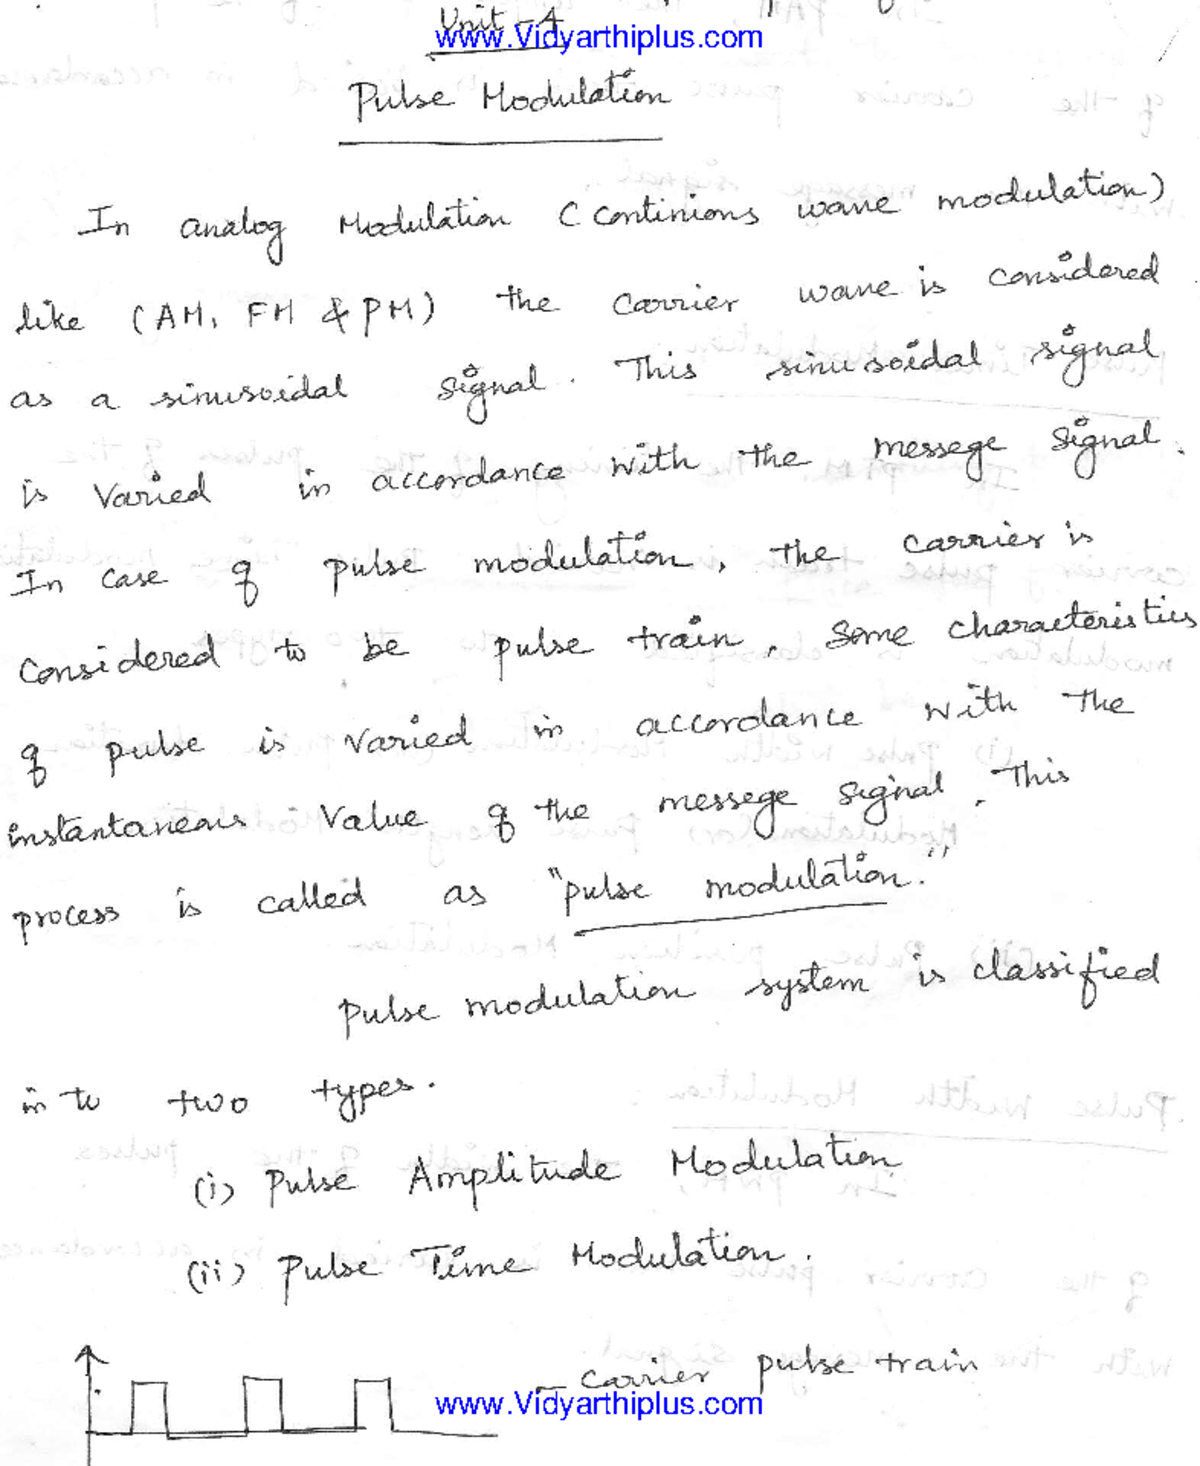 Unit - 4
www.Vidyarthiplus.com
Pulse Modulation
In analog Modulation (Continions wave modulation)
like (AM, FM & PM) the carrier wave is considered
as a sinusoidal signal. This sinusoidal signal
is varied in accordance with the messege signal.
In case of pulse modulation, the carrier is
considered to be pulse train. Some characteristics
of pulse is varied in accordance with the
instantaneous value of the messege signal. This
process is called as "pulse modulation."
Pulse modulation system is classified
in to two types.
(i) Pulse Amplitude Modulation
(ii) Pulse Time Modulation.
- carrier pulse train
www.Vidyarthiplus.com